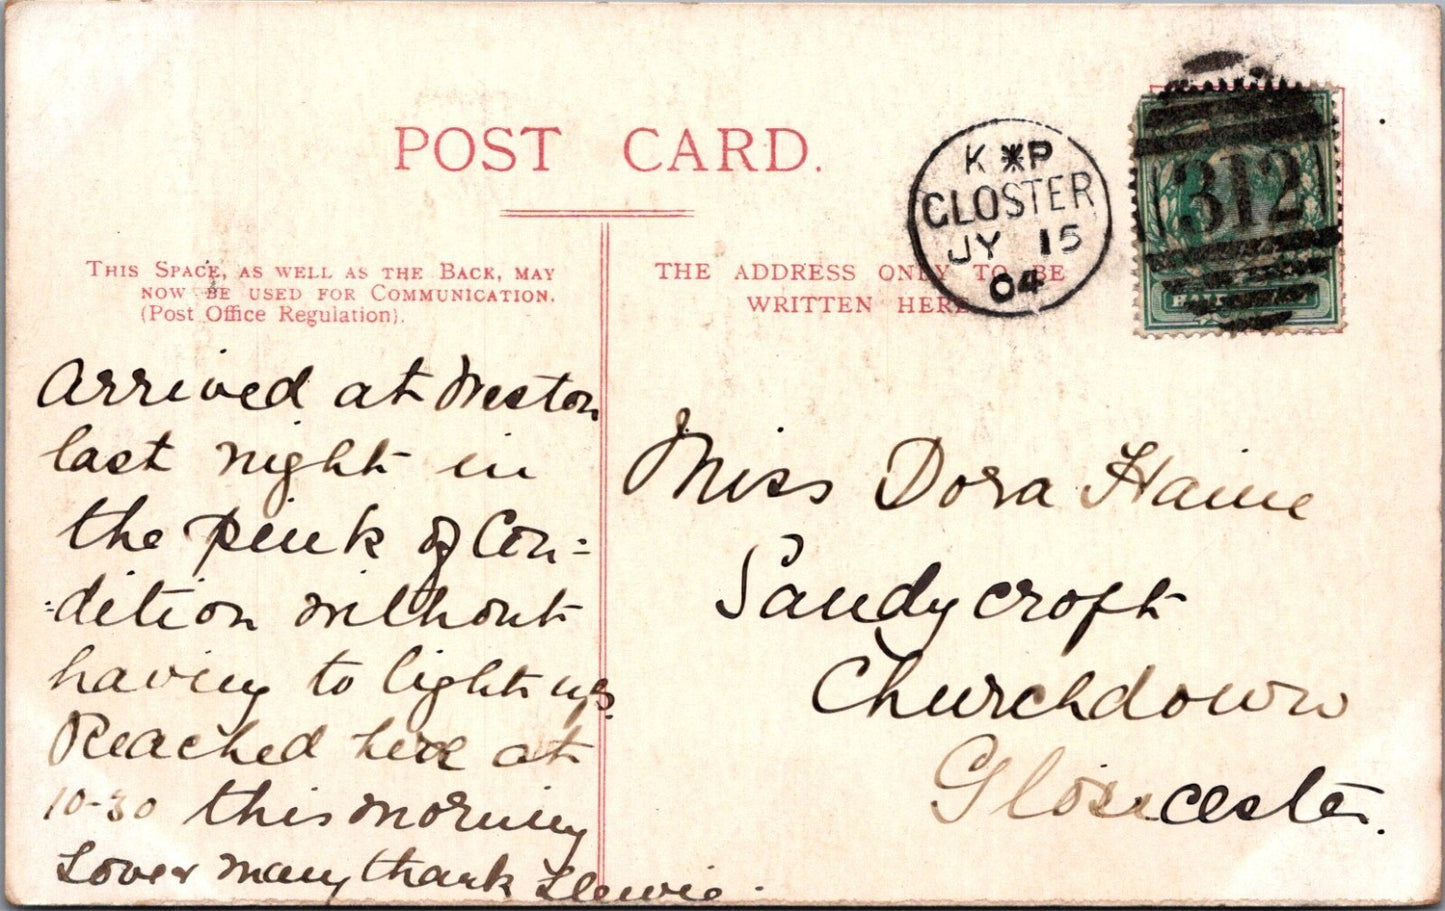 POST CARD.
K * P
GLOSTER
JY 15
04
312
HALFPENNY
THIS SPACE, AS WELL AS THE BACK, MAY
NOW BE USED FOR COMMUNICATION.
(Post Office Regulation).
THE ADDRESS ONLY TO BE
WRITTEN HERE
Arrived at Weston
last night in
the pink of Con=
=dition without
having to light up.
Reached here at
10-30 this morning
Love many thank
Miss Dora Haine
Sandycroft
Churchdown
Gloucester.